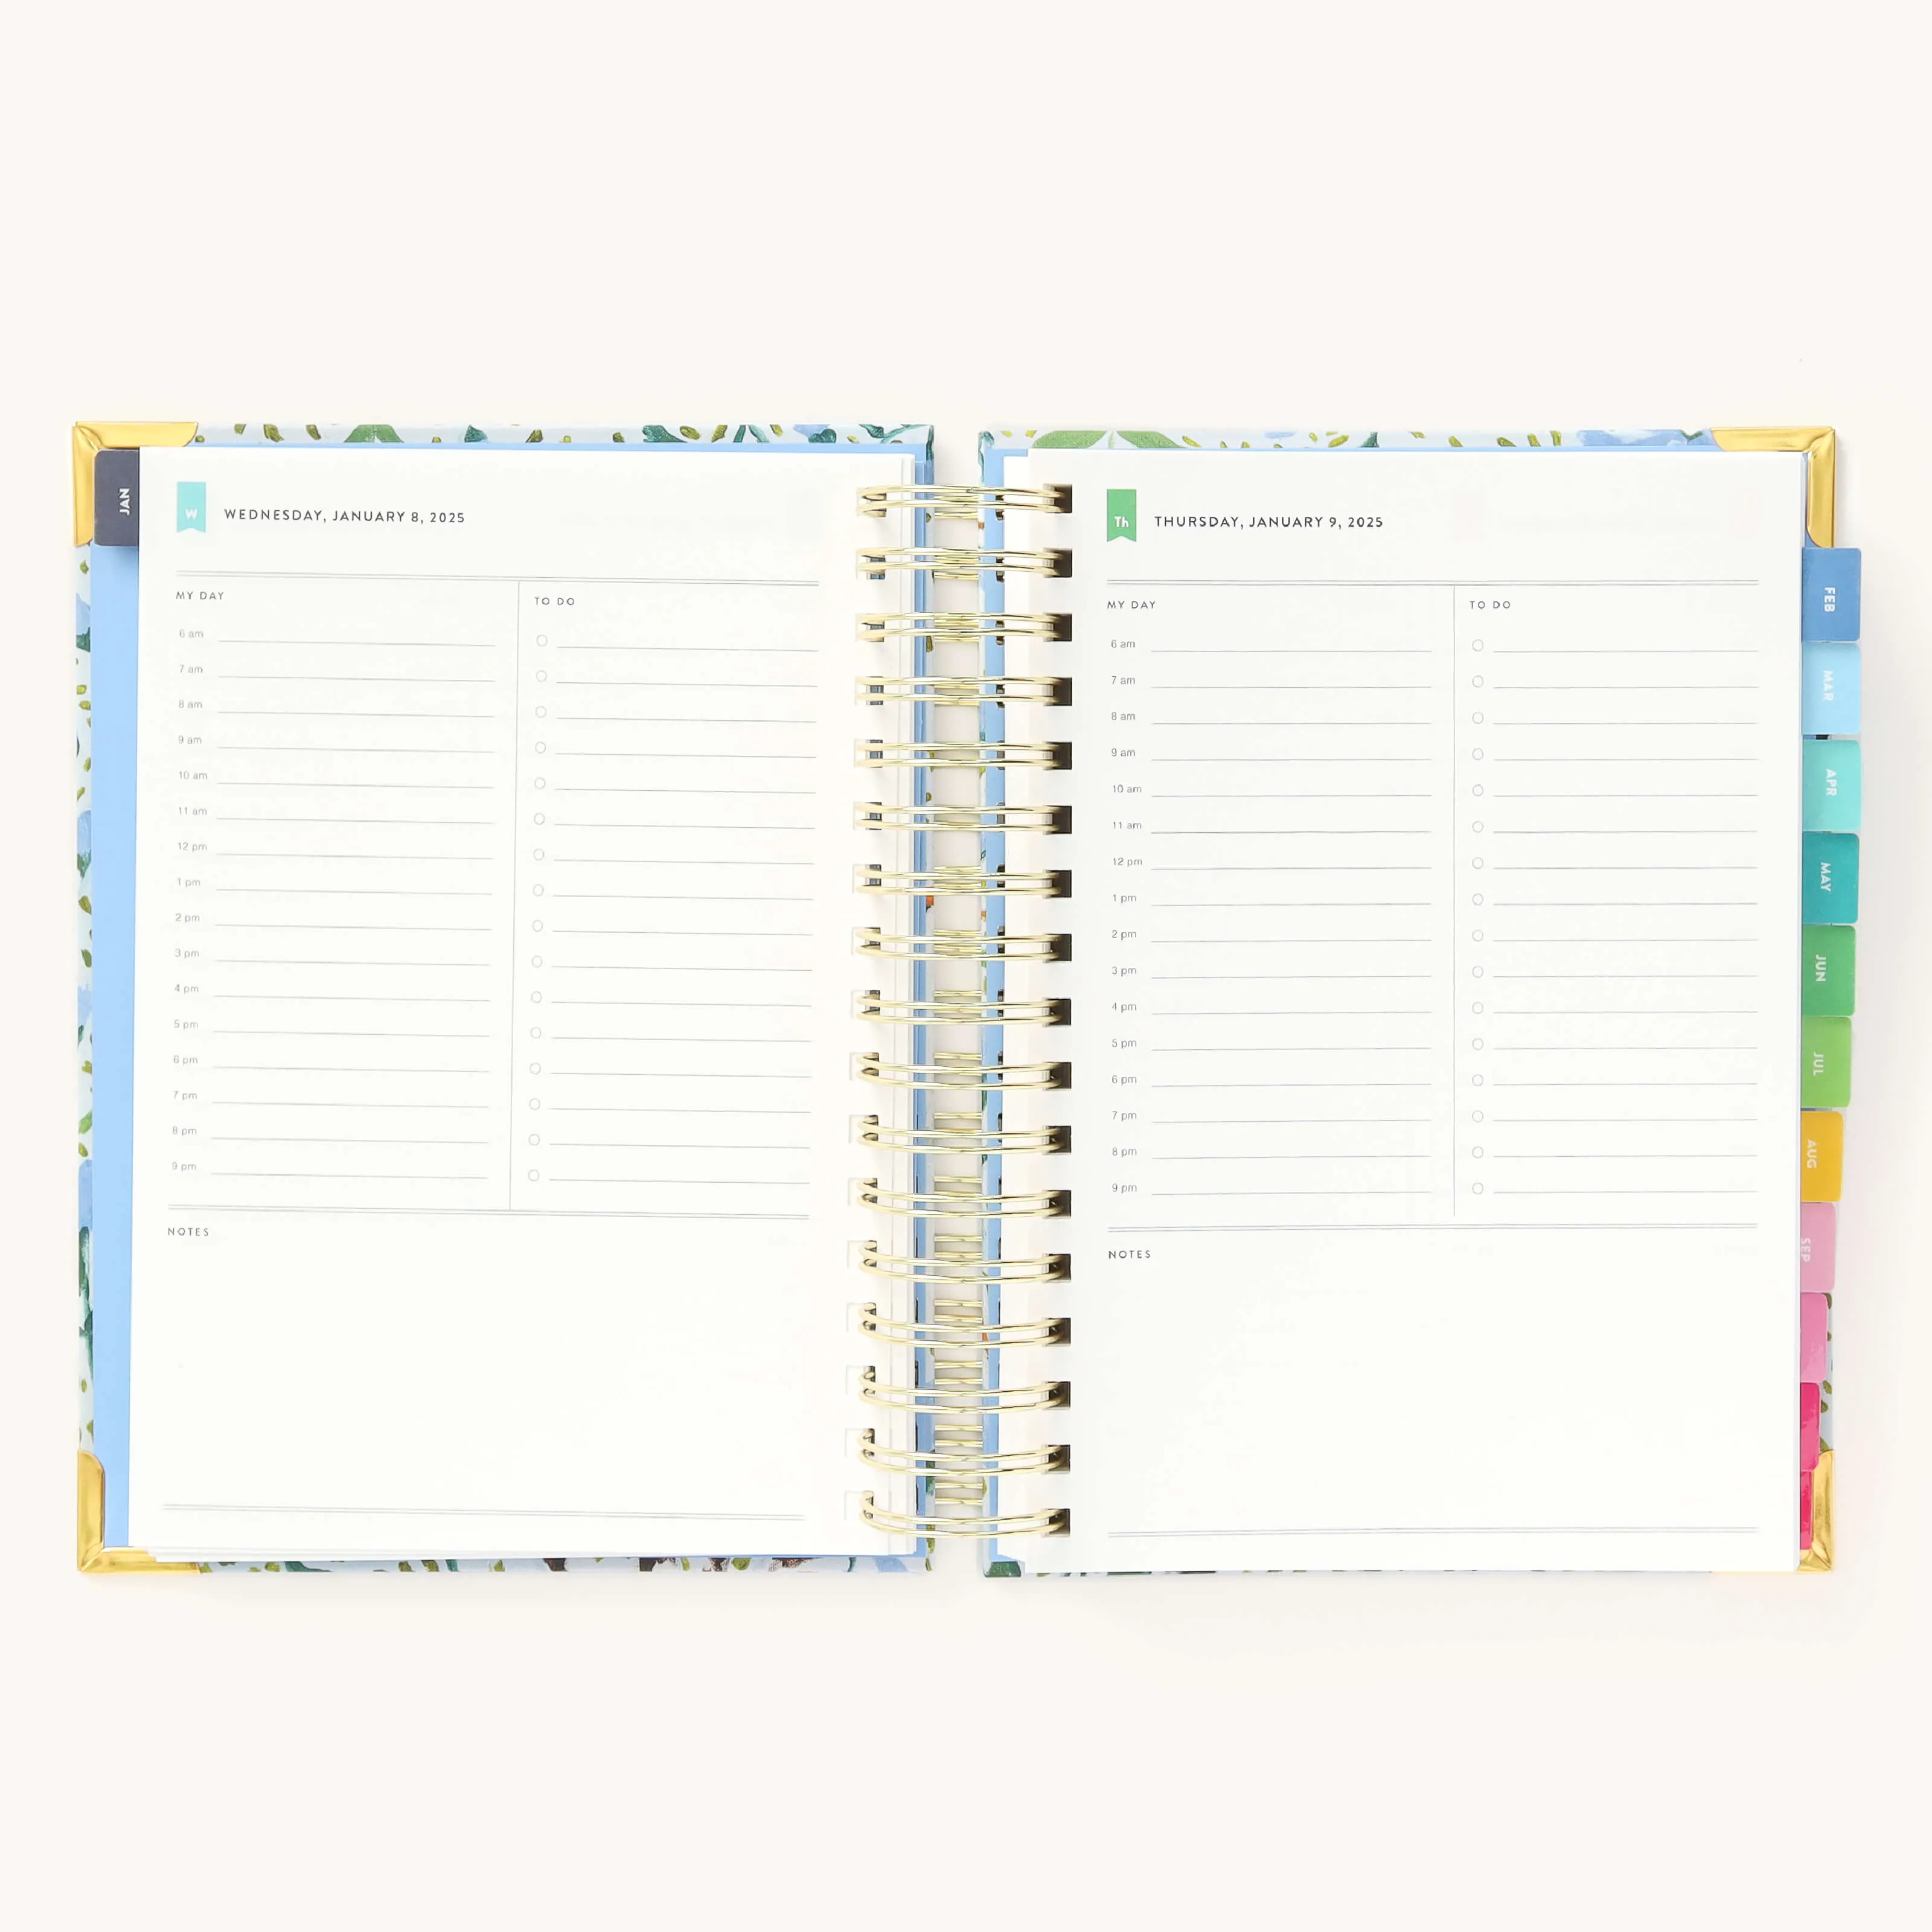 JAN
W
WEDNESDAY, JANUARY 8, 2025
MY DAY
6 am
7 am
8 am
9 am
10 am
11 am
12 pm
1 pm
2 pm
3 pm
4 pm
5 pm
6 pm
7 pm
8 pm
9 pm
TO DO
NOTES
Th
THURSDAY, JANUARY 9, 2025
MY DAY
6 am
7 am
8 am
9 am
10 am
11 am
12 pm
1 pm
2 pm
3 pm
4 pm
5 pm
6 pm
7 pm
8 pm
9 pm
TO DO
NOTES
FEB
MAR
APR
MAY
JUN
JUL
AUG
SEP